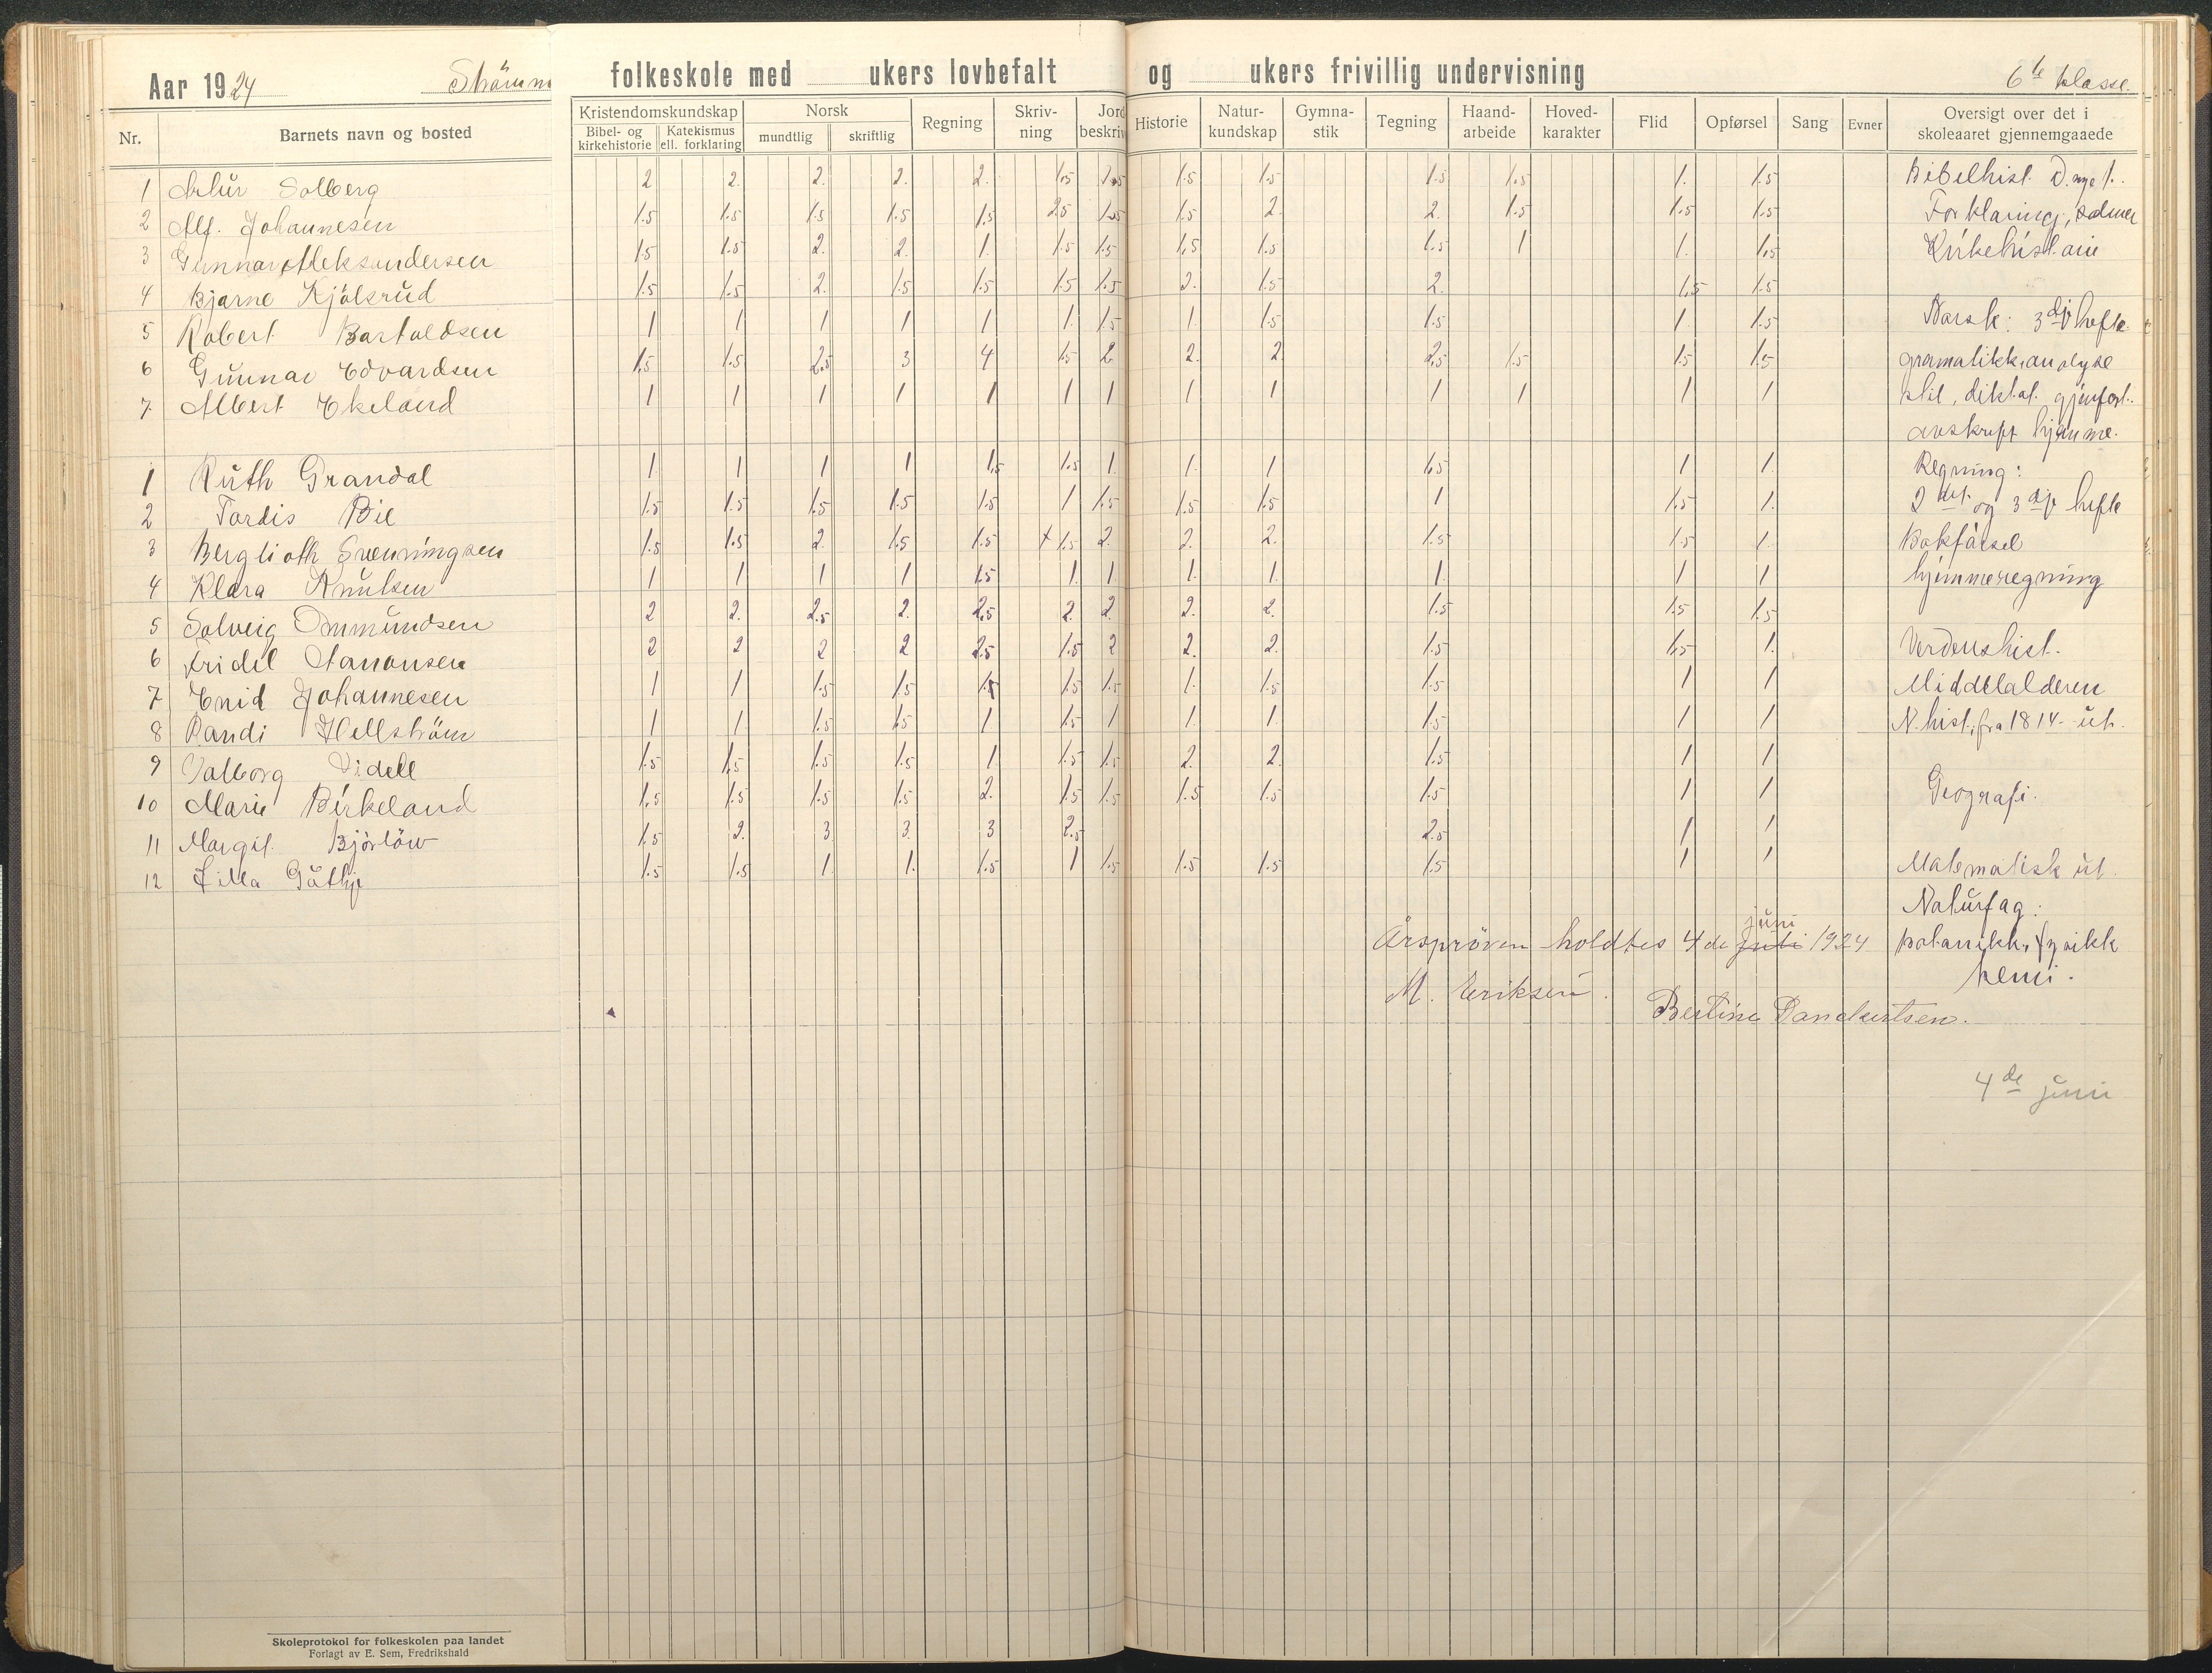 Aar 1924 Strömm folkeskole med ukers lovbefalt og ukers frivillig undervisning 6te klasse.
Nr. Barnets navn og bosted Kristendomskundskap Bibel- og kirkehistorie Katekismus ell. forklaring Norsk mundtlig skriftlig Regning Skriv-ning Jord beskriv Historie Natur-kundskap Gymna-stik Tegning Haand-arbeide Hoved-karakter Flid Opførsel Sang Evner Oversigt over det i skoleaaret gjennemgaaede
1 Artur Solberg 2 2. 2. 2. 2. 1.5 2.5 1.5 1.5 1.5 1.5 1. 1.5 Bibelhist. D. nye t.
2 Alf. Johannesen 1.5 1.5 1.5 1.5 1.5 2.5 1.5 1.5 2. 2. 1.5 1.5 1.5 Forklaring, salmer
3 Gunnar Aleksandersen 1.5 1.5 2. 2. 1. 1.5 1.5 1.5 1.5 1.5 1 1. 1.5 Kirkehistorie
4 Bjarne Kjölsrud 1.5 1.5 2. 1.5 1.5 1.5 1.5 2. 1.5 2. 1.5 1.5
5 Robert Bartoldsen 1 1 1 1 1 1. 1.5 1. 1.5 1.5 1 1.5 Norsk: 3dje hefte
6 Gunnar Edvardsen 1.5 1.5 2.5 3 4 1.5 2 2. 2 2.5 1.5 1.5 1.5 gramatikk, analyse
7. Albert Ekeland 1 1 1 1 1 1 1 1 1 1 1 1 1 stil, diktat. gjenfort.
avskrift hjemme.
1 Ruth Grandal 1 1 1 1 1.5 1.5 1. 1. 1 1.5 1 1. Regning:
2 Tordis Bie 1.5 1.5 1.5 1.5 1.5 1 1.5 1.5 1.5 1 1.5 1. 2det og 3dje hefte
3 Berglioth Svenningsen 1.5 1.5 2. 1.5 1.5 + 1.5 2. 2. 2. 1.5 1.5 1. Bokförsel
4 Klara Knutsen 1 1 1 1 1.5 1. 1. 1. 1. 1. 1 1 hjemmeregning
5 Solveig Ommundsen 2 2. 2.5 2. 2.5 2. 2. 2. 2. 1.5 1.5 1.5
6 Fridel Aanonsen 2 2 2 2 2.5 1.5 2 2. 2. 1.5 1.5 1. Verdenshist.
7 Enid Johannesen 1 1 1.5 1.5 1.5 1.5 1.5 1. 1.5 1.5 1 1 Middelalderen
8 Randi Hellström 1 1. 1.5 1.5 1 1.5 1 1. 1. 1.5 1 1 N. hist. fra 1814 - ut.
9 Valborg Videll 1.5 1.5 1.5 1.5 1. 1.5 1.5 2. 2. 1.5 1 1
10 Marie Birkeland 1.5 1.5 1.5 1.5 2. 1.5 1.5 1.5 1.5 1.5 1 1 Geografi.
11 Margit Björlöw 1.5 2. 3 3. 3 2.5 2.5 1 1
12 Lilla Gåthje 1.5 1.5 1. 1. 1.5 1 1.5 1.5 1.5 1.5 1 1 Matematisk ut.
Naturfag:
juni
Årsprøven holdtes 4de Juli 1924 botanikk, fysikk
kemi.
M. Eriksen.
Bertine Danckertsen.
4de juni
Skoleprotokol for folkeskolen paa landet
Forlagt av E. Sem, Fredrikshald